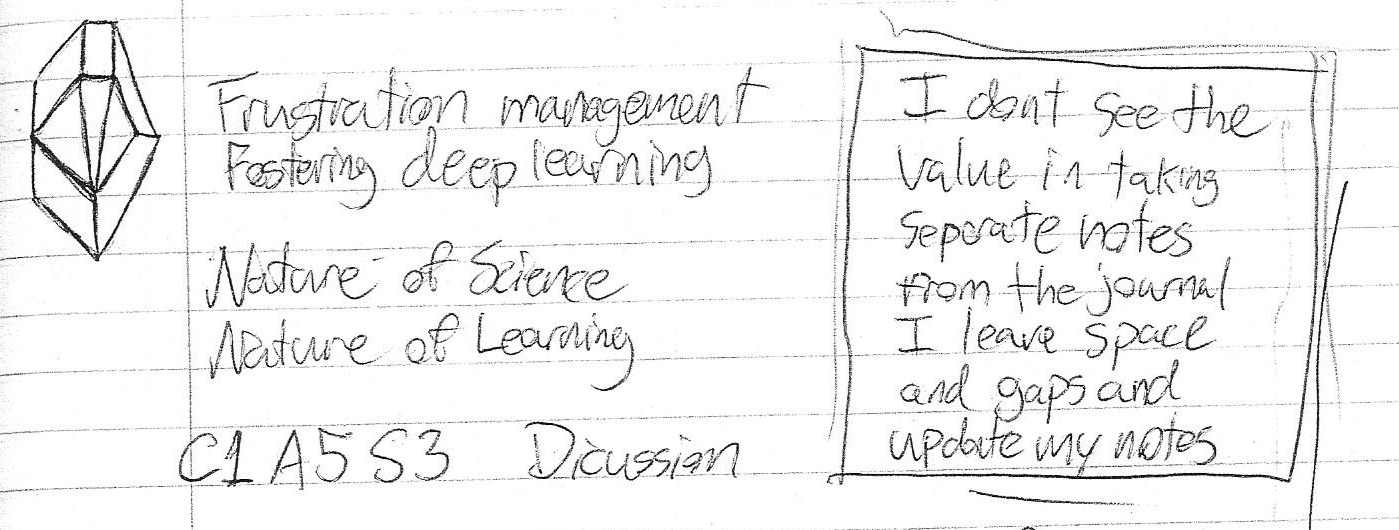 Frustration management
Fostering deep learning
Nature of Science
Nature of Learning
C1 A5 S3 Dicussion
I dont see the
value in taking
seperate notes
from the journal
I leave space
and gaps and
update my notes